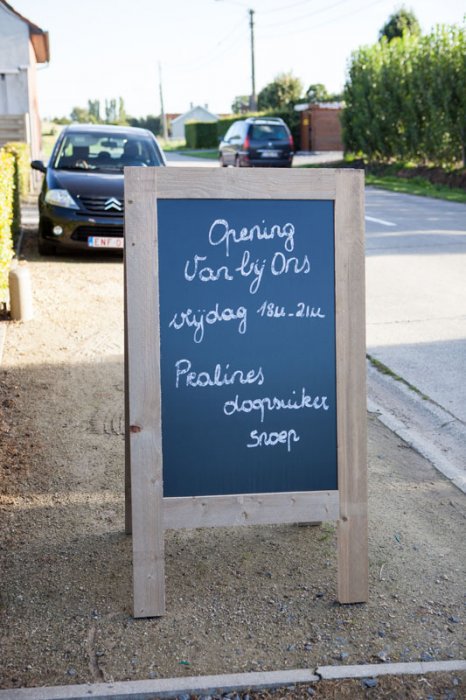 Opening
Van bij Ons
vrijdag 18u - 21u
Pralines
doopsuiker
snoep